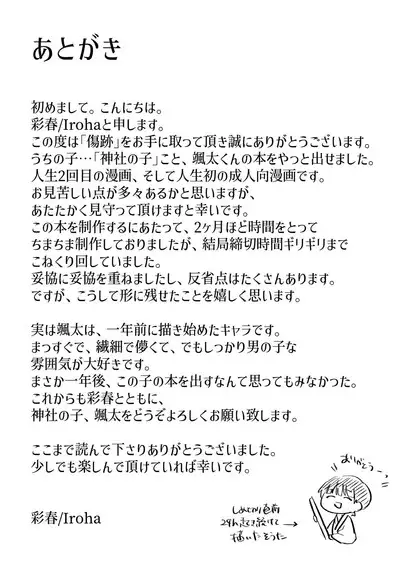 あとがき
初めまして。こんにちは。
彩春/Irohaと申します。
この度は「傷跡」をお手に取って頂き誠にありがとうございます。
うちの子…「神社の子」こと、颯太くんの本をやっと出せました。
人生2回目の漫画、そして人生初の成人向漫画です。
お見苦しい点が多々あるかと思いますが、
あたたかく見守って頂けますと幸いです。
この本を制作するにあたって、2ヶ月ほど時間をとって
ちまちま制作しておりましたが、結局締切時間ギリギリまで
こねくり回していました。
妥協に妥協を重ねましたし、反省点はたくさんあります。
ですが、こうして形に残せたことを嬉しく思います。
実は颯太は、一年前に描き始めたキャラです。
まっすぐで、繊細で儚くて、でもしっかり男の子な
雰囲気が大好きです。
まさか一年後、この子の本を出すなんて思ってもみなかった。
これからも彩春とともに、
神社の子、颯太をどうぞよろしくお願い致します。
ここまで読んで下さりありがとうございました。
少しでも楽しんで頂けていれば幸いです。
彩春/Iroha
ありがとうーっ
しめきり直前
24h起き続けて
描いたそうた